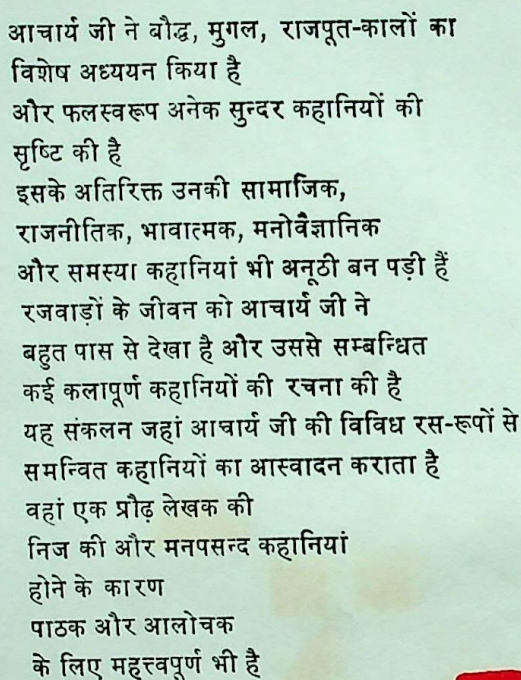 आचार्य जी ने बौद्ध, मुगल, राजपूत-कालों का
विशेष अध्ययन किया है
और फलस्वरूप अनेक सुन्दर कहानियों की
सृष्टि की है
इसके अतिरिक्त उनकी सामाजिक,
राजनीतिक, भावात्मक, मनोवैज्ञानिक
और समस्या कहानियां भी अनूठी बन पड़ी हैं
रजवाड़ों के जीवन को आचार्य जी ने
बहुत पास से देखा है और उससे सम्बन्धित
कई कलापूर्ण कहानियों की रचना की है
यह संकलन जहां आचार्य जी की विविध रस-रूपों से
समन्वित कहानियों का आस्वादन कराता है
वहां एक प्रौढ़ लेखक की
निज की और मनपसन्द कहानियां
होने के कारण
पाठक और आलोचक
के लिए महत्त्वपूर्ण भी है